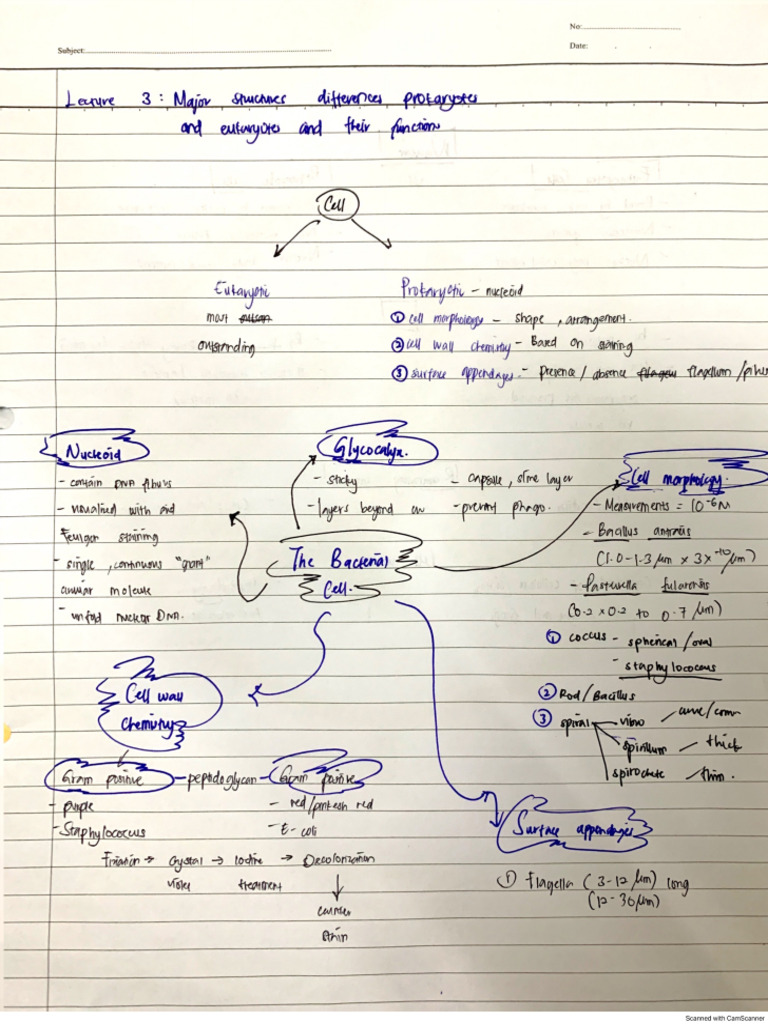 No:
Subject:
Date:
Lecture 3 : Major structures differences prokaryotes
and eukaryotes and their functions
Cell
Eukaryotic
most
outstanding
Prokaryotic - nucleoid
① cell morphology - shape , arrangement.
② cell wall chemistry - Based on staining
③ surface appendages - presence / absence flagellum / pilus
Nucleoid
- contain DNA fibers
- visualized with aid
Feulgen staining
- single , continuous "giant"
circular molecule
- unfold nuclear DNA.
Glycocalyx.
- sticky
- layers beyond cw
- capsule , slime layer
- prevent phago.
The Bacterial
Cell.
Cell morphology.
- Measurements = 10⁻⁶ M
- Bacillus
(1.0 - 1.3 μm × 3 × 10 μm)
- Pasteurella
(0.2 × 0.2 to 0.7 μm)
① coccus - spherical / oval
- staphylococcus
② Rod / Bacillus
③ spiral
vibrio - curve / comm
spirillum - thick
spirochete - thin.
Cell wall
chemistry
Gram positive - peptidoglycan - Gram positive
- purple
- Staphylococcus
- red / pinkish red
- E-coli
Fixation → Crystal → Iodine → Decolorization
violet treatment
counter
stain
Surface appendages
① Flagella (3-12 μm) long
(12 - 30 μm)
Scanned with CamScanner